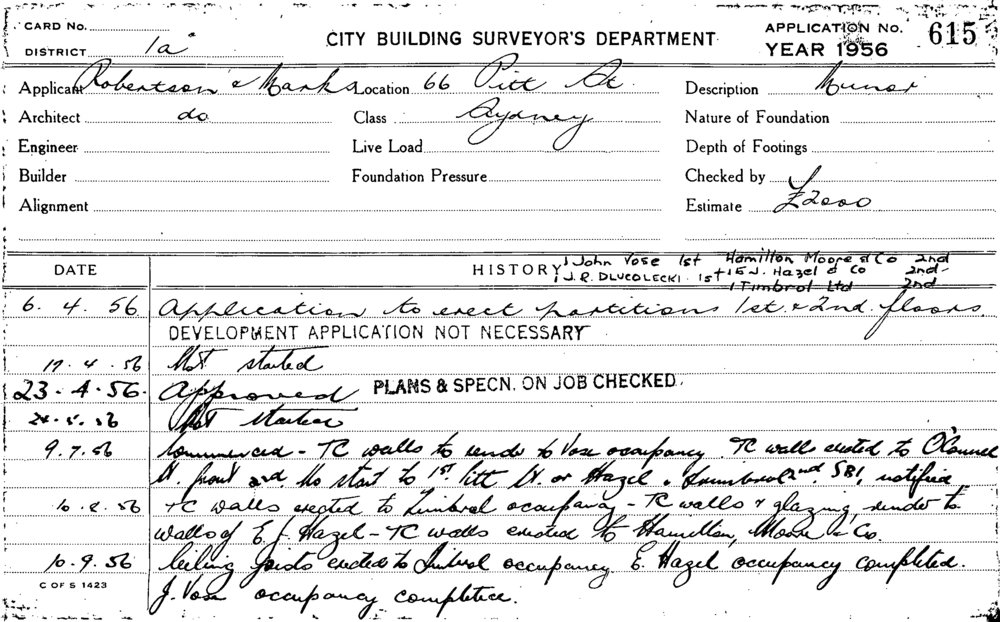 CARD No.
DISTRICT 1a
CITY BUILDING SURVEYOR'S DEPARTMENT
APPLICATION No. 615
YEAR 1956
Applicant Robertson & Marks Location 66 Pitt St. Description Minor
Architect do Class Sydney Nature of Foundation
Engineer Live Load Depth of Footings
Builder Foundation Pressure Checked by
Alignment Estimate £2000
DATE HISTORY
John Vose 1st Hamilton Moore & Co 2nd
J.R. DLUCOLECKI. 1st E.J. Hazel & Co 2nd
Timbrol Ltd 2nd
6. 4. 56 Application to erect partitions 1st. & 2nd. floors.
DEVELOPMENT APPLICATION NOT NECESSARY
Not started
23. 4. 56. Approved PLANS & SPECN. ON JOB CHECKED.
Not started
9. 7. 56 Commenced - TC walls to render to Vose occupancy. TC wall erected to O'Connell
St. front and No start to 1st. Pitt St. or Hazel & 2nd. SBI notified
TC walls erected to Timbrol occupancy - TC walls & glazing, render to
walls of E. J. Hazel - TC walls erected to Hamilton, Moore & Co.
10. 9. 56 Ceiling joists erected to Timbrol occupancy E. Hazel occupancy completed.
J. Vose occupancy completed.
C OF S 1423